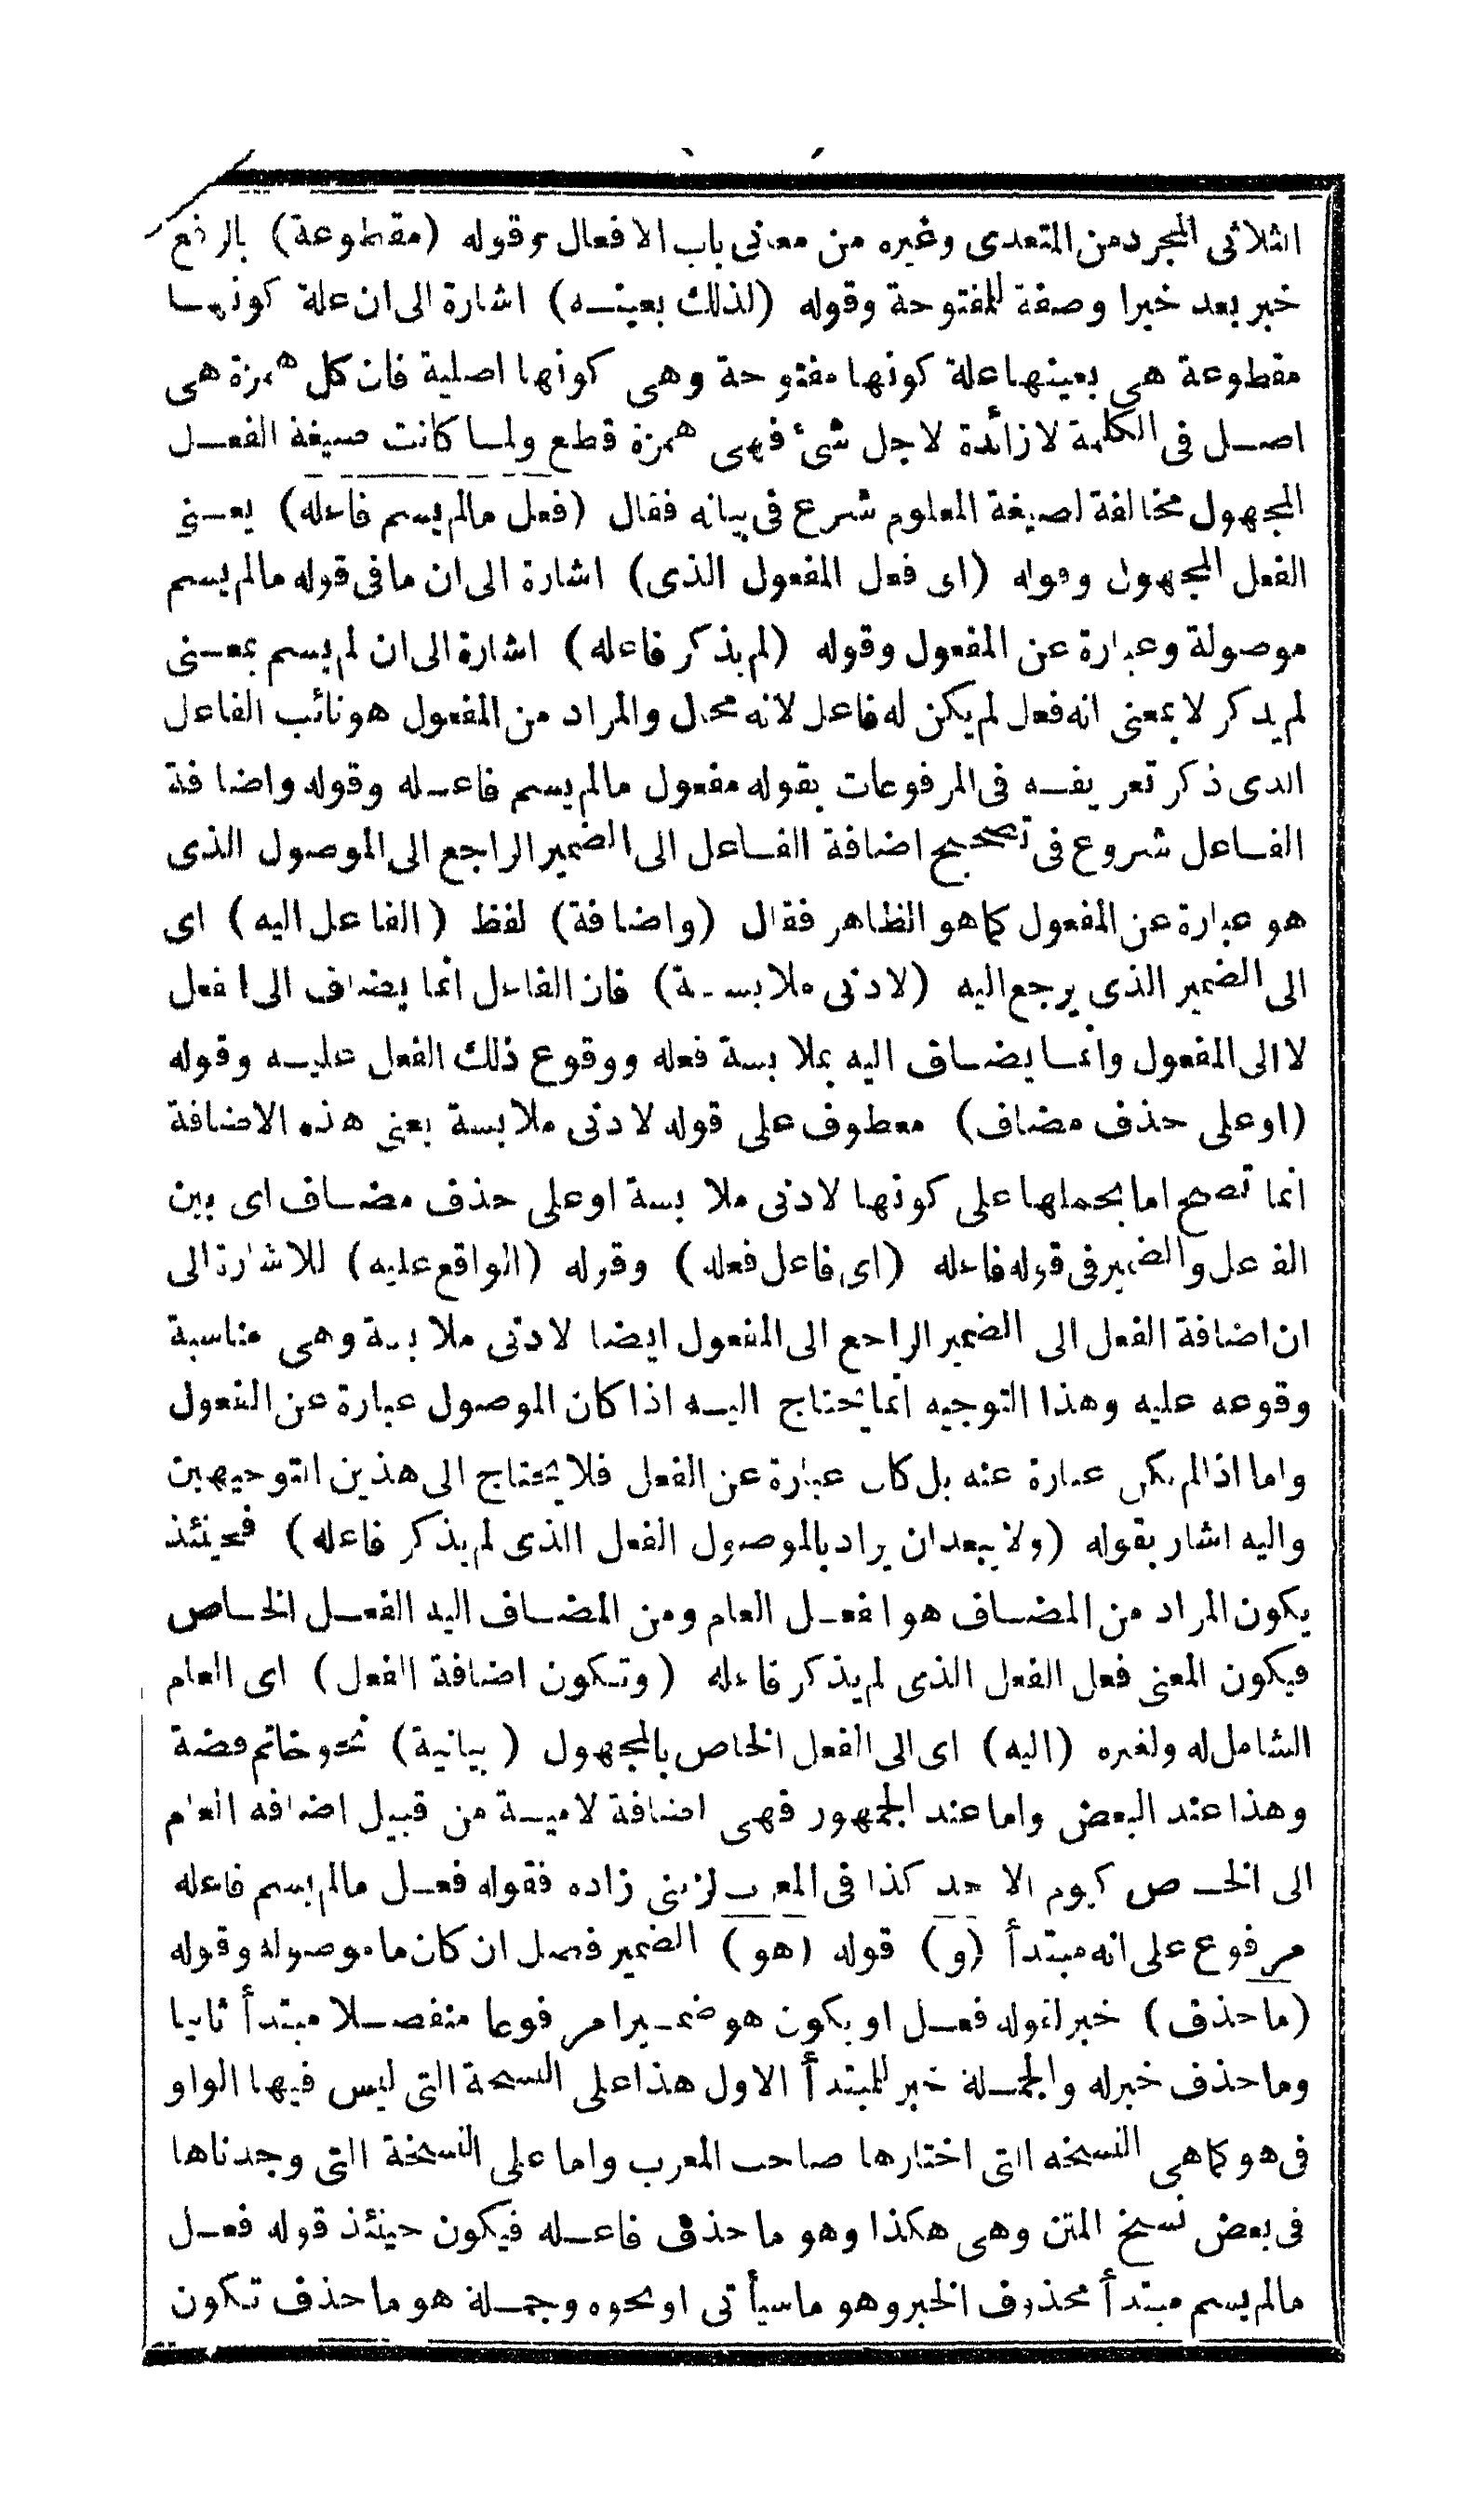 الثلاثى المجرد من المتعدى وغيره من معانى باب الافعال وقوله (مقطوعة) بالرفع
خبر بعد خبرا وصفة للمفتوحة وقوله (لذلك بعينه) اشارة الى ان علة كونها
مقطوعة هى بعينها علة كونها مفتوحة وهى كونها اصلية فان كل همزة هى
اصل فى الكلمة لا زائدة لاجل شئ فهى همزة قطع ولما كانت صيغة الفعل
المجهول مخالفة لصيغة المعلوم شرع فى بيانه فقال (فعل مالم يسم فاعله) يعنى
الفعل المجهول وقوله (اى فعل المفعول الذى) اشارة الى ان ما فى قوله مالم يسم
موصولة وعبارة عن المفعول وقوله (لم يذكر فاعله) اشارة الى ان لم يسم بمعنى
لم يذكر لا بمعنى انه فعل لم يكن له فاعل لانه محال والمراد من المفعول هو نائب الفاعل
الذى ذكر تعريفه فى المرفوعات بقوله مفعول مالم يسم فاعله وقوله واضافة
الفاعل شروع فى تصحيح اضافة الفاعل الى الضمير الراجع الى الموصول الذى
هو عبارة عن المفعول كما هو الظاهر فقال (واضافة) لفظ (الفاعل اليه) اى
الى الضمير الذى يرجع اليه (لادنى ملابسة) فان الفاعل انما يضاف الى الفعل
لا الى المفعول وانما يضاف اليه بملابسة فعله ووقوع ذلك الفعل عليه وقوله
(او على حذف مضاف) معطوف على قوله لادنى ملابسة يعنى هذه الاضافة
انما تصح اما بحملها على كونها لادنى ملابسة او على حذف مضاف اى بين
الفاعل والضمير فى قوله فاعله (اى فاعل فعله) وقوله (الواقع عليه) للاشارة الى
ان اضافة الفعل الى الضمير الراجع الى المفعول ايضا لادنى ملابسة وهى مناسبة
وقوعه عليه وهذا التوجيه انما يحتاج اليه اذا كان الموصول عبارة عن المفعول
واما اذا لم يكن عبارة عنه بل كان عبارة عن الفعل فلا يحتاج الى هذين التوجيهين
واليه اشار بقوله (ولا يبعد ان يراد بالموصول الفعل الذى لم يذكر فاعله) فحينئذ
يكون المراد من المضاف هو الفعل العام ومن المضاف اليه الفعل الخاص
فيكون المعنى فعل الفعل الذى لم يذكر فاعله (وتكون اضافة الفعل) اى العام
الشامل له ولغيره (اليه) اى الى الفعل الخاص بالمجهول (بيانية) نحو خاتم فضة
وهذا عند البعض واما عند الجمهور فهى اضافة لامية من قبيل اضافة العام
الى الخاص كيوم الاحد كذا فى المعرب لزينى زاده فقوله فعل مالم يسم فاعله
مرفوع على انه مبتدأ (و) قوله (هو) الضمير فصل ان كان ما موصولة وقوله
(ما حذف) خبر لقوله فعل او يكون هو ضميرا مرفوعا منفصلا مبتدأ ثانيا
وما حذف خبرله والجملة خبر للمبتدأ الاول هذا على النسخة التى ليس فيها الواو
فى هو كما هى النسخه التى اختارها صاحب المعرب واما على النسخة التى وجدناها
فى بعض نسخ المتن وهى هكذا وهو ما حذف فاعله فيكون حينئذ قوله فعل
مالم يسم مبتدأ محذوف الخبر وهو ما سيأتى او نحوه وجملة هو ما حذف تكون